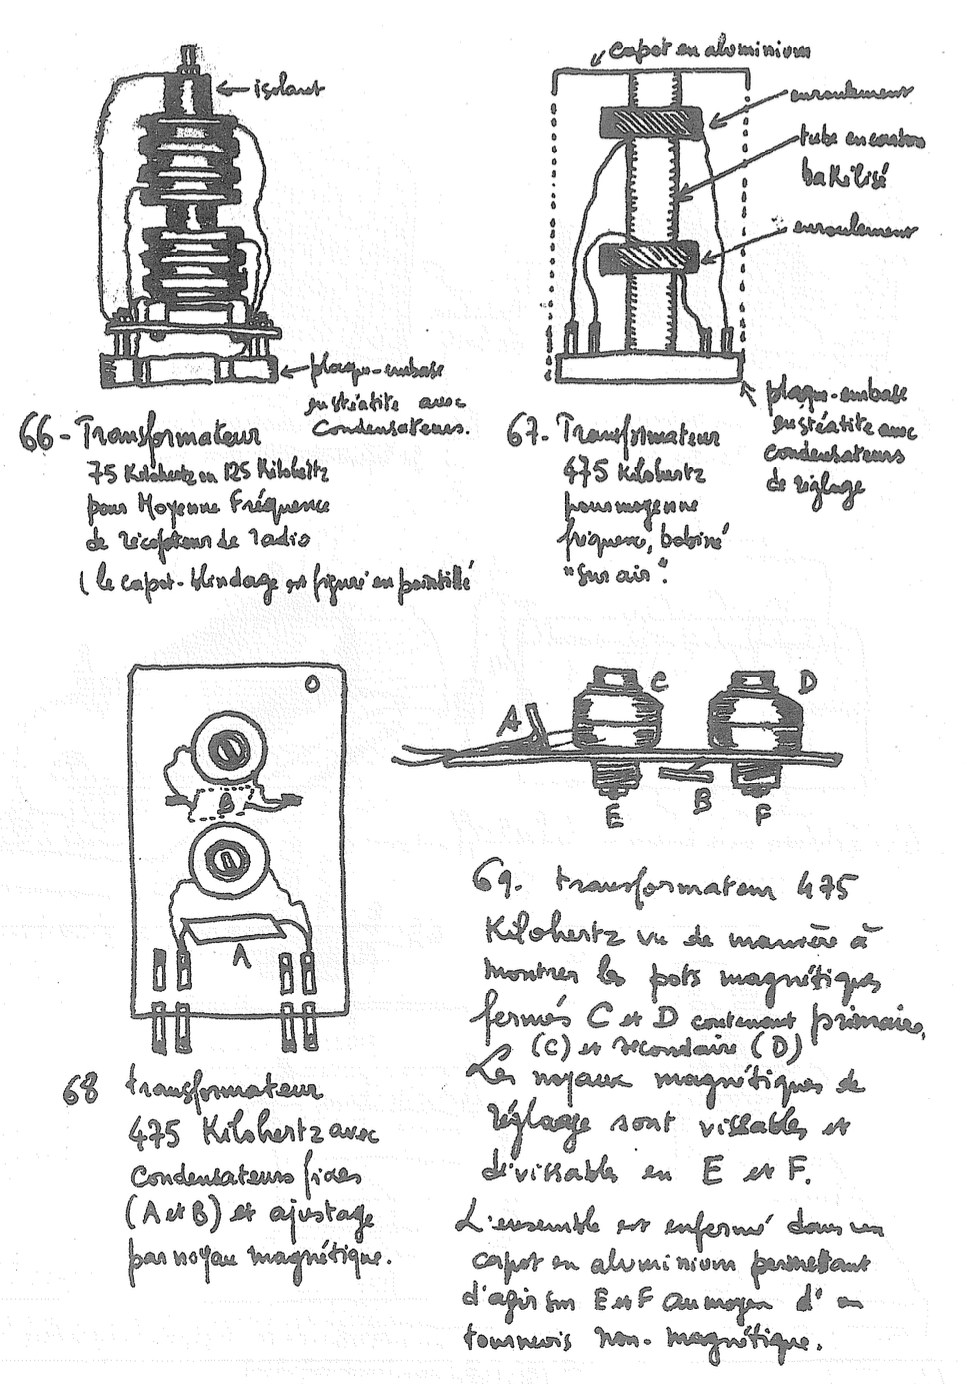 isolant
plaque-embase
en stéatite avec
Condensateurs.
66 - Transformateur
75 Kilohertz ou 125 Kilohertz
pour Moyenne Fréquence
de récepteur de radio
(le capot-blindage est figuré en pointillé
capot en aluminium
enroulement
tube en carton
bakélisé
enroulement
plaque-embase
en stéatite avec
condensateurs
de réglage
67. Transformateur
475 Kilohertz
pour moyenne
fréquence, bobiné
"sur air".
B
A
68 transformateur
475 Kilohertz avec
Condensateurs fixes
(A et B) et ajustage
par noyau magnétique.
A
C
D
E
B
F
69. transformateur 475
Kilohertz vu de manière à
montrer les pots magnétiques
fermés C et D contenant primaire,
(C) et secondaire (D)
Les noyaux magnétiques de
réglage sont vissables et
dévissables en E et F.
L'ensemble est enfermé dans un
capot en aluminium permettant
d'agir sur E et F au moyen d'un
tournevis non-magnétique.